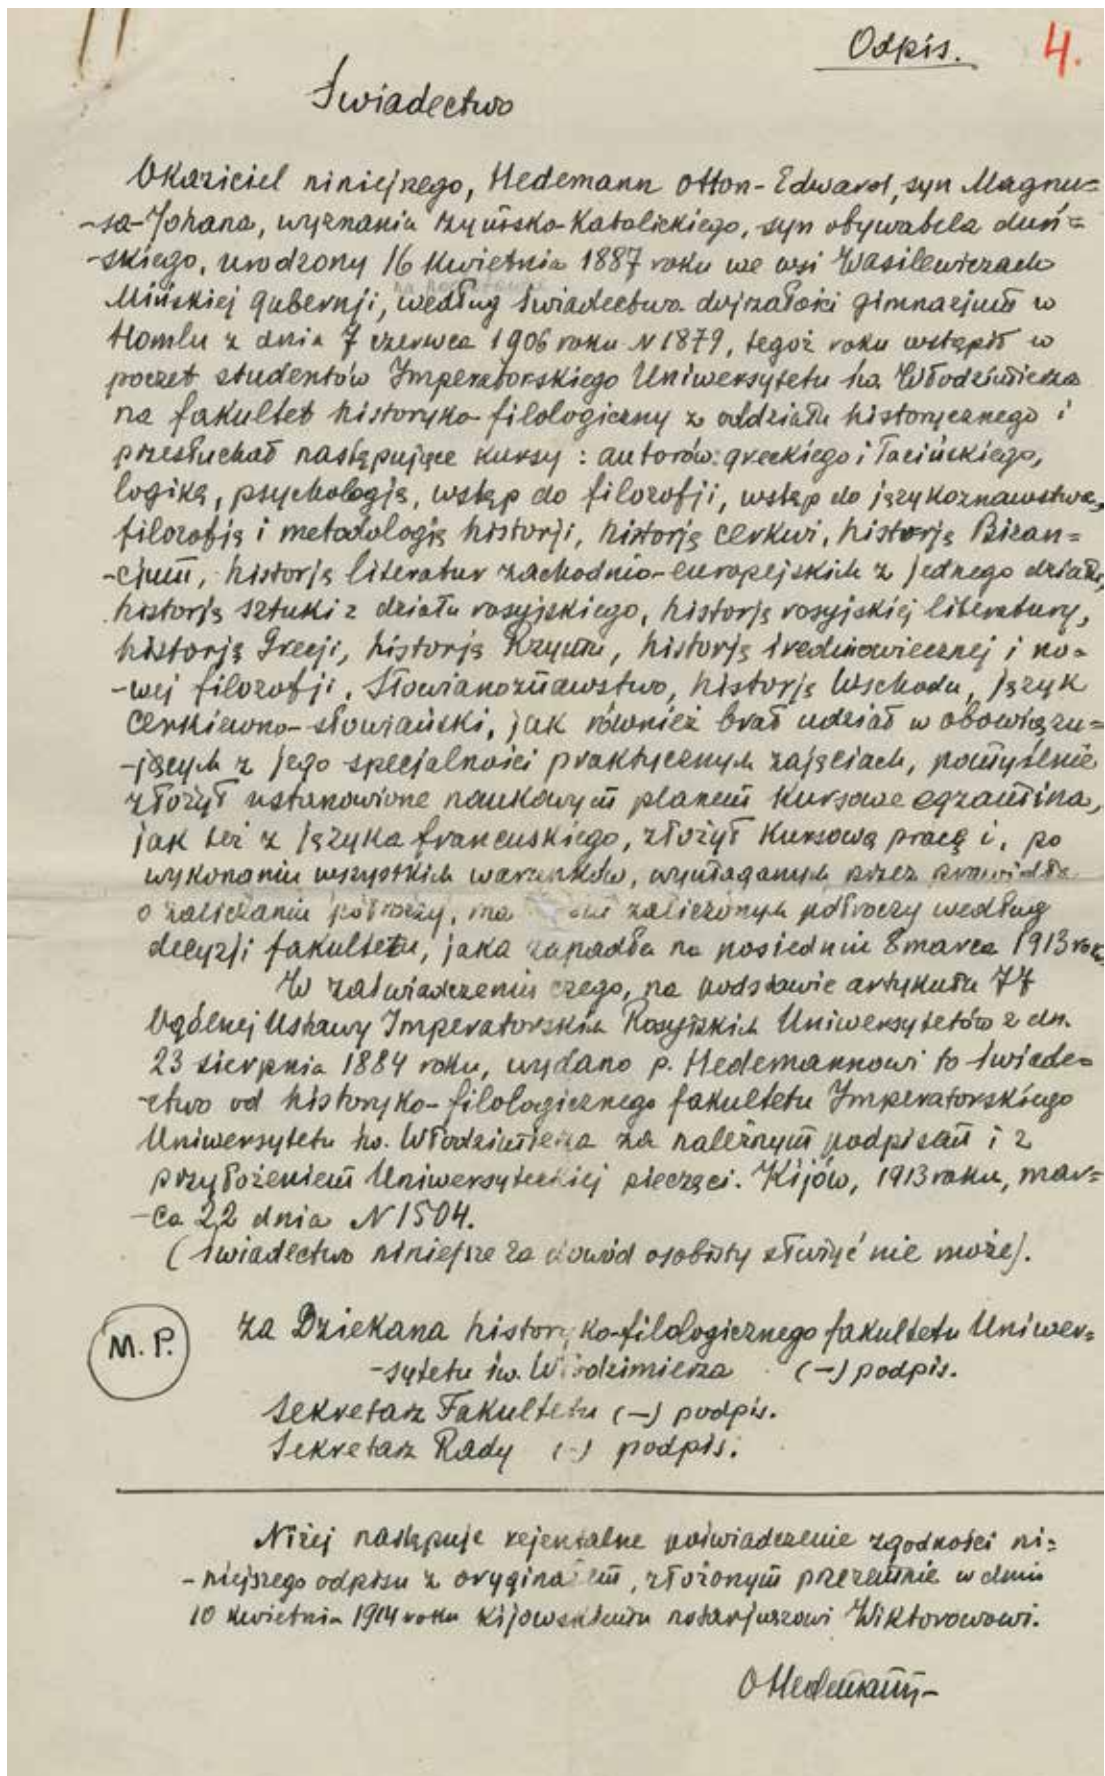 Odpis. 4.
Świadectwo
Okaziciel niniejszego, Hedemann Otton-Edward, syn Magnu=
-sa-Johana, wyznania rzymsko-katolickiego, syn obywatela duń=
-skiego, urodzony 16 kwietnia 1887 roku we wsi Wasilewiczach
Mińskiej gubernji, według świadectwa dojrzałości gimnazjum w
Homlu z dnia 7 czerwca 1906 roku N 1879, tegoż roku wstąpił w
poczet studentów Imperatorskiego Uniwersytetu św. Włodzimierza
na fakultet historyko-filologiczny z oddziału historycznego i
przesłuchał następujące kursy: autorów: greckiego i łacińskiego,
logikę, psychologję, wstęp do filozofji, wstęp do językoznawstwa,
filozofję i metodologję historji, historję cerkwi, historję Bizan=
-cjum, historję literatur zachodnio-europejskich z jednego działu,
historję sztuki z działu rosyjskiego, historję rosyjskiej literatury,
historję Grecji, historję Rzymu, historję średniowiecznej i no=
-wej filozofji, Słowianoznawstwo, historję Wschodu, język
cerkiewno-słowiański, jak również brał udział w obowiązu=
-jących z jego specjalności praktycznych zajęciach, pomyślnie
złożył ustanowione naukowym planem kursowe egzamina,
jak też z języka francuskiego, złożył kursową pracę i, po
wykonaniu wszystkich warunków, wymaganych przez prawidła
o zaliczaniu półroczy, ma zaliczonych półroczy według
decyzji fakultetu, jaka zapadła na posiedniu 8 marca 1913 roku.
W zaświadczeniu czego, na podstawie artykułu 77
Ogólnej Ustawy Imperatorskich Rosyjskich Uniwersytetów z dn.
23 sierpnia 1884 roku, wydano p. Hedemannowi to świade=
-ctwo od historyko-filologicznego fakultetu Imperatorskiego
Uniwersytetu św. Włodzimierza za należnym podpisam i z
przyłożeniem Uniwersyteckiej pieczęci. Kijów, 1913 roku, mar=
-ca 22 dnia N 1504.
(Świadectwo niniejsze za dowód osobisty służyć nie może).
M.P.
za Dziekana historyko-filologicznego fakultetu Uniwer=
-sytetu św. Włodzimierza (-) podpis.
Sekretarz Fakultetu (-) podpis.
Sekretarz Rady (-) podpis.
Niżej następuje rejentalne poświadczenie zgodności ni=
-niejszego odpisu z oryginałem, złożonym przezemnie w dniu
10 kwietnia 1914 roku kijowskiemu notarjuszowi Wiktorowowi.
OHedemann